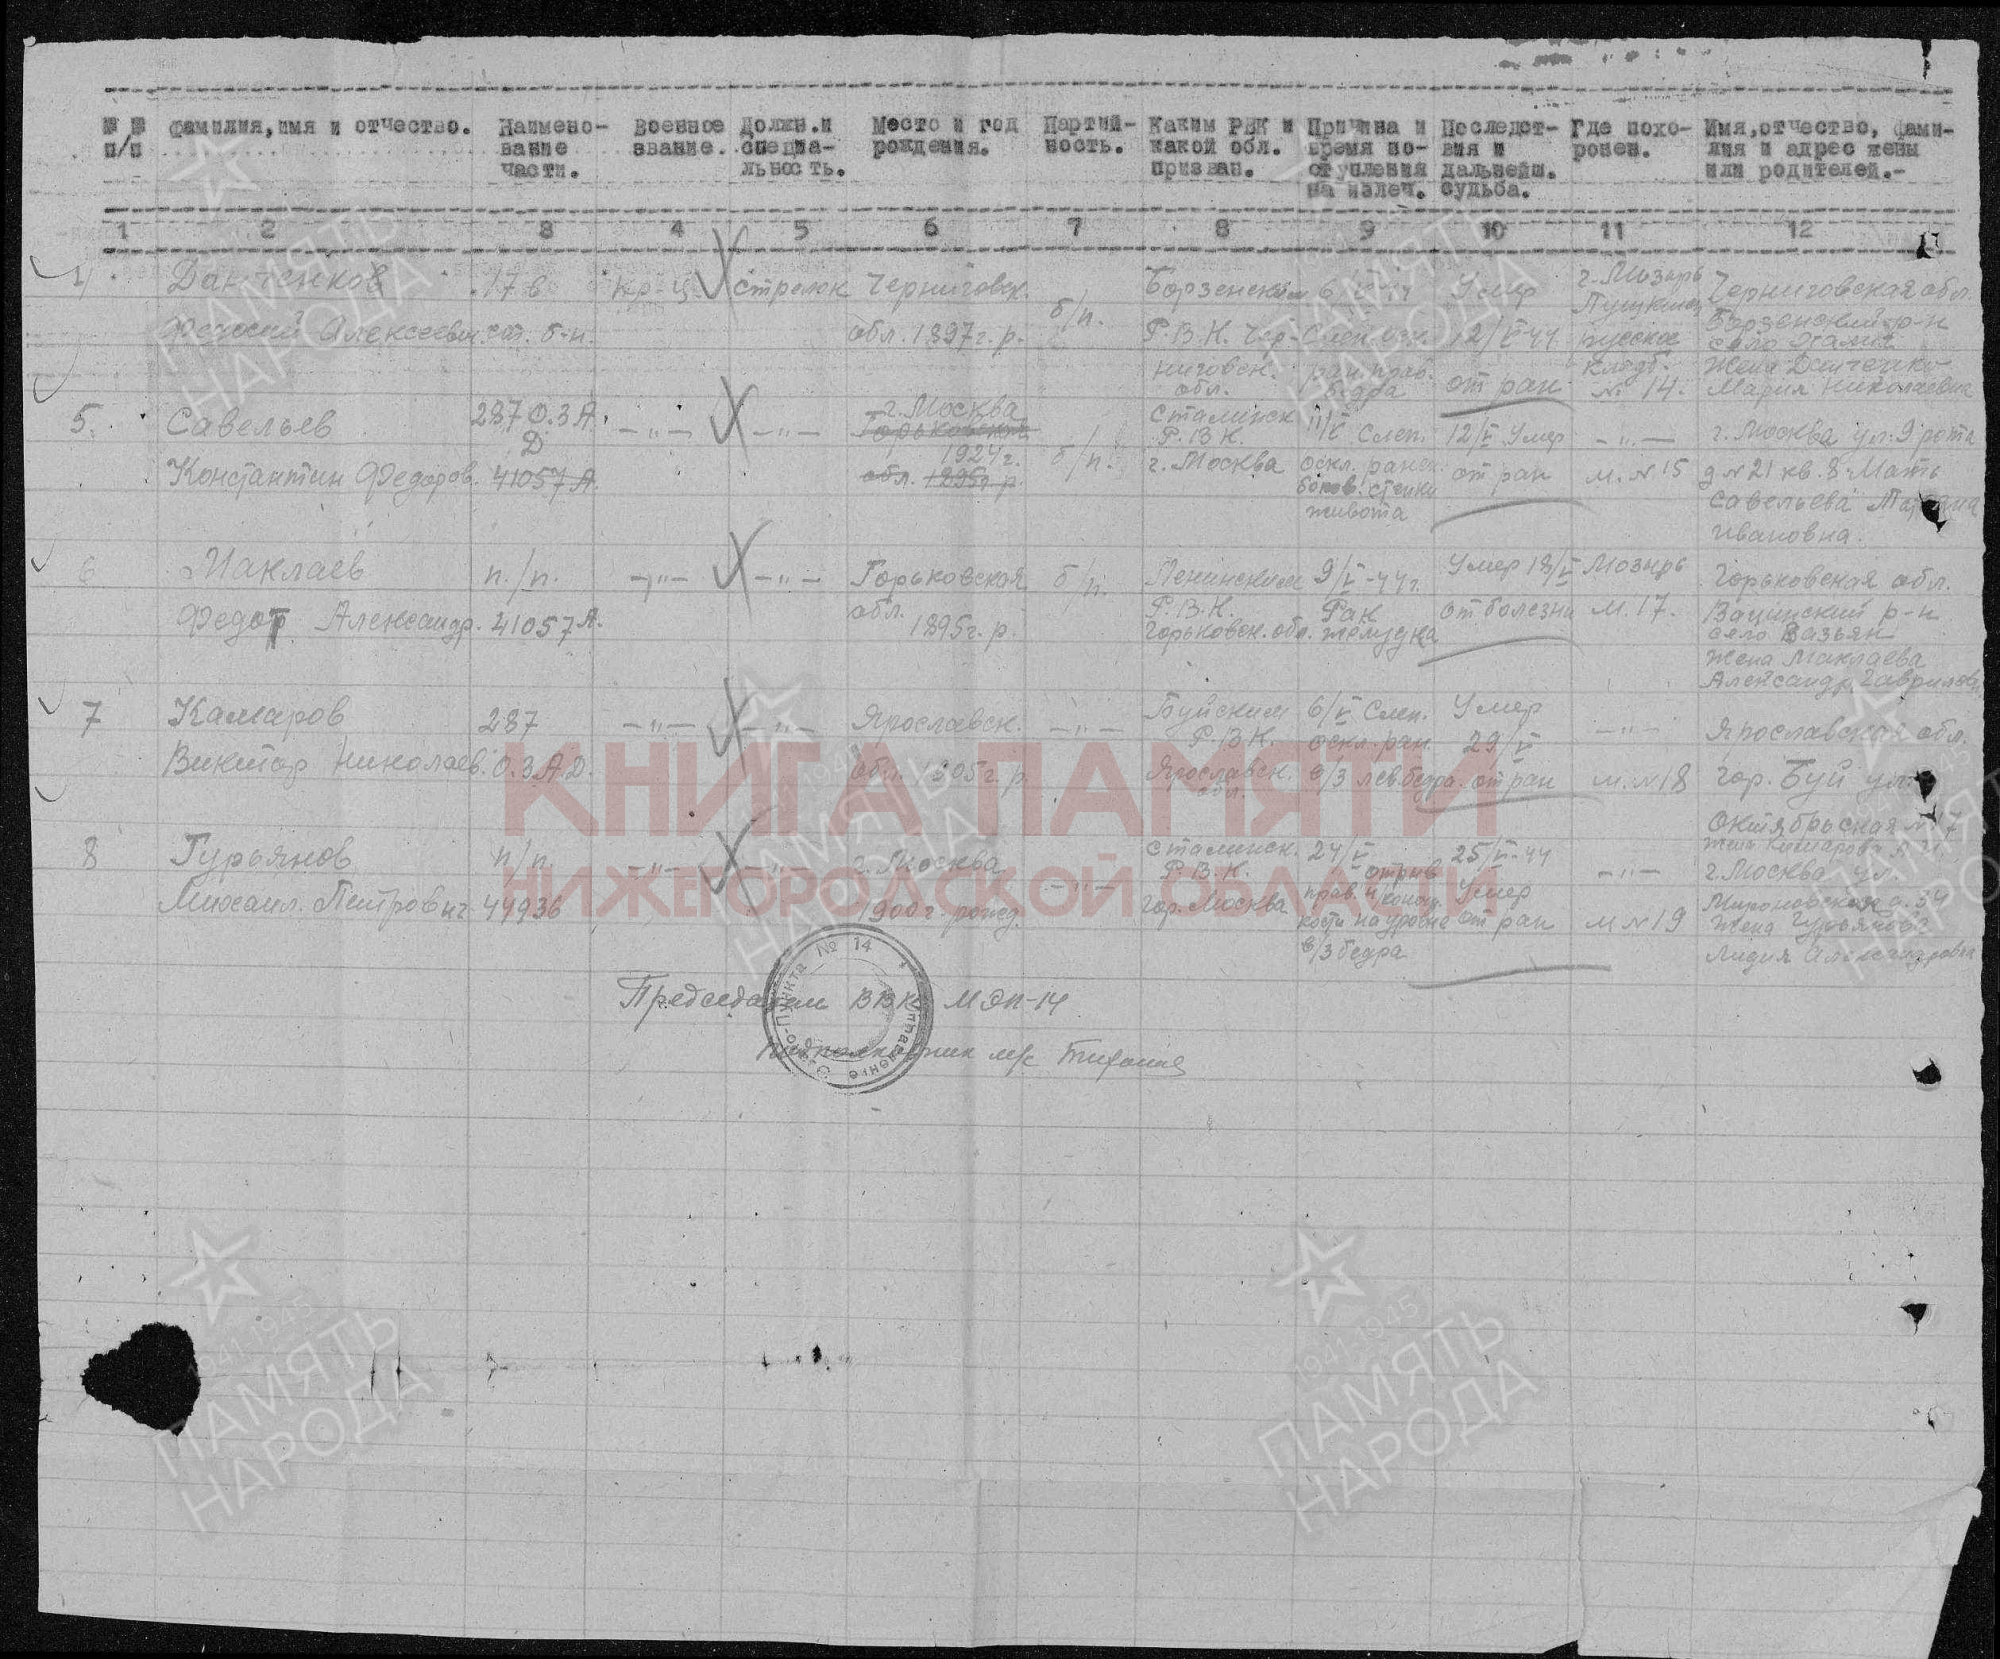 №№ п/п
Фамилия,имя и отчество.
Наимено-
вание
части.
Военное
звание.
Должн.и
специа-
льность.
Место и год
рождения.
Партий-
ность.
Каким РВК и
какой обл.
призван.
Причина и
время по-
ступления
на излеч.
Последст-
вия и
дальнейш.
судьба.
Где похо-
ронен.
Имя,отчество, фами-
лия и адрес жены
или родителей.-
1 2 3 4 5 6 7 8 9 10 11 12
4 17 в кр-ц стрелок Черниговск.
обл. 1897г.р.
б/п.
Борзенским
Р.В.К. Чер-
ниговск.
обл.
Слеп.
ран. прав.
бедра
Умер
12/V-44
от ран
г. Мозырь
русское
кладб.
№ 14.
Черниговская обл.
Борзенский р-н
село
Жена
Мария Николаевна
5. Савельев
Константин Федоров.
287 О.З.А.
Д
41057 А.
—"—
—"—
г. Москва
Горьковская
1924г.
обл. 1895г.р.
б/п.
Сталинск
Р.В.К.
г. Москва
11/V Слеп.
оск. ранен.
боков. стенки
живота
12/V Умер
от ран
—"—
м. № 15
г. Москва ул. 9 рота
д № 21 кв. 8 Мать
Савельева
Ивановна.
6 Маклаев
Федот Александр.
п./п.
41057 А.
—"—
—"—
Горьковская
обл.
1895г.р.
б/п.
Ленинским
Р.В.К.
Горьковск. обл.
9/V-44г.
Рак
желудка
Умер 18/V
от болезни
Мозырь
м. 17.
Горьковская обл.
Вачинский р-н
село Вазьян
Жена Маклаева
Александр. Гавриловн
7 Камаров
Виктор Николаев.
287
О.З.А.Д.
—"—
—"—
Ярославск.
обл. 1905г.р.
—"—
Буйским
Р.В.К.
Ярославск.
обл.
6/V Слеп.
оскл. ран.
в/3 лев. бедра
Умер
29/V
от ран
—"—
м. №18
Ярославская обл.
гор. Буй ул.
Октябрьская №17
8 Гурьянов
Михаил Петрович
п/п.
44936
—"—
—"—
г. Москва
1900г. рожд.
—"—
Сталинск.
Р.В.К.
гор. Москва
24/V
отрыв
прав. н/конеч.
кости на уровне
в/3 бедра
25/V-44
Умер
от ран
—"—
м №19
г. Москва ул.
Мироновская д. 34
Жена Гурьянова
Лидия Александровна
Председатель ВВК МЭП-14
подполковник м/с
Управление
Пункта № 14
КНИГА ПАМЯТИ
НИЖЕГОРОДСКОЙ ОБЛАСТИ
1941-1945
ПАМЯТЬ
НАРОДА